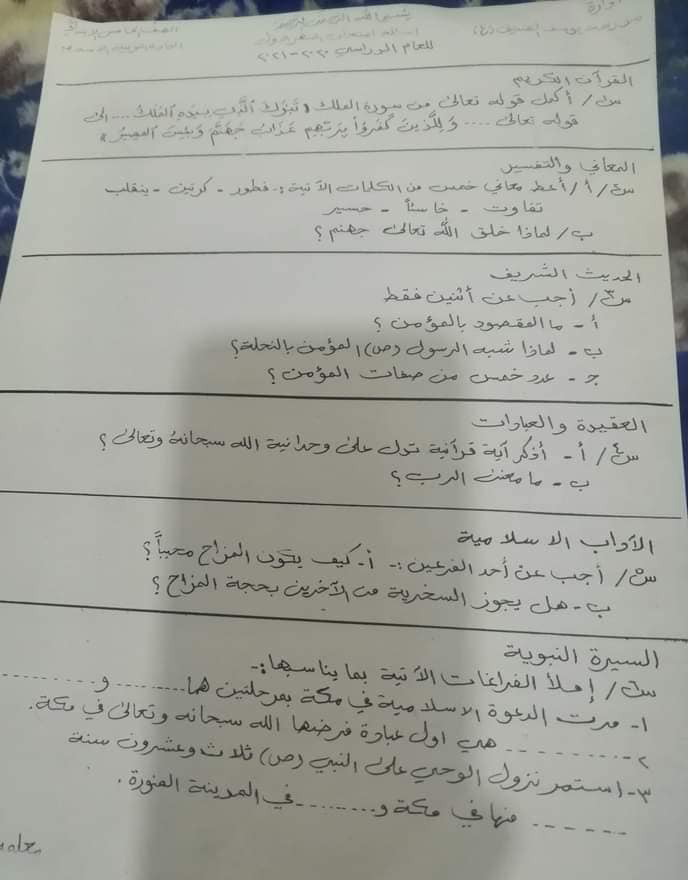 بسم الله الرحمن الرحيم
الصف الخامس
للعام الدراسي ٢٠٢٠-٢٠٢١
القرآن الكريم
س١/ أكمل قوله تعالى من سورة الملك (تَبَارَكَ الَّذِي بِيَدِهِ الْمُلْكُ .... الى
قوله تعالى .... وَلِلَّذِينَ كَفَرُوا بِرَبِّهِمْ عَذَابُ جَهَنَّمَ وَبِئْسَ الْمَصِيرُ)
المعاني والتفسير
س٢/ أ/ أعط معاني خمس من الكلمات الآتية :- فطور - كرتين - ينقلب
تفاوت - خاسئاً - حسير
ب/ لماذا خلق الله تعالى جهنم ؟
الحديث الشريف
س٣/ أجب عن أثنين فقط
أ- ما المقصود بالمؤمن ؟
ب- لماذا شبه الرسول (ص) المؤمن بالنحلة ؟
ج- عدد خمس من صفات المؤمن ؟
العقيدة والعبادات
س٤/ أ- أذكر آية قرآنية تدل على وحدانية الله سبحانه وتعالى ؟
ب- ما معنى الرب ؟
الآداب الاسلامية
س٥/ أجب عن أحد الفرعين :- أ- كيف يكون المزاح محبباً ؟
ب- هل يجوز السخرية من الآخرين بحجة المزاح ؟
السيرة النبوية
س٦/ إملأ الفراغات الآتية بما يناسبها :-
١- مرت الدعوة الاسلامية في مكة بمرحلتين هما ........ و ........
٢- ........ هي اول عبادة فرضها الله سبحانه وتعالى في مكة.
٣- استمر نزول الوحي على النبي (ص) ثلاث وعشرون سنة
........ منها في مكة و ........ في المدينة المنورة .